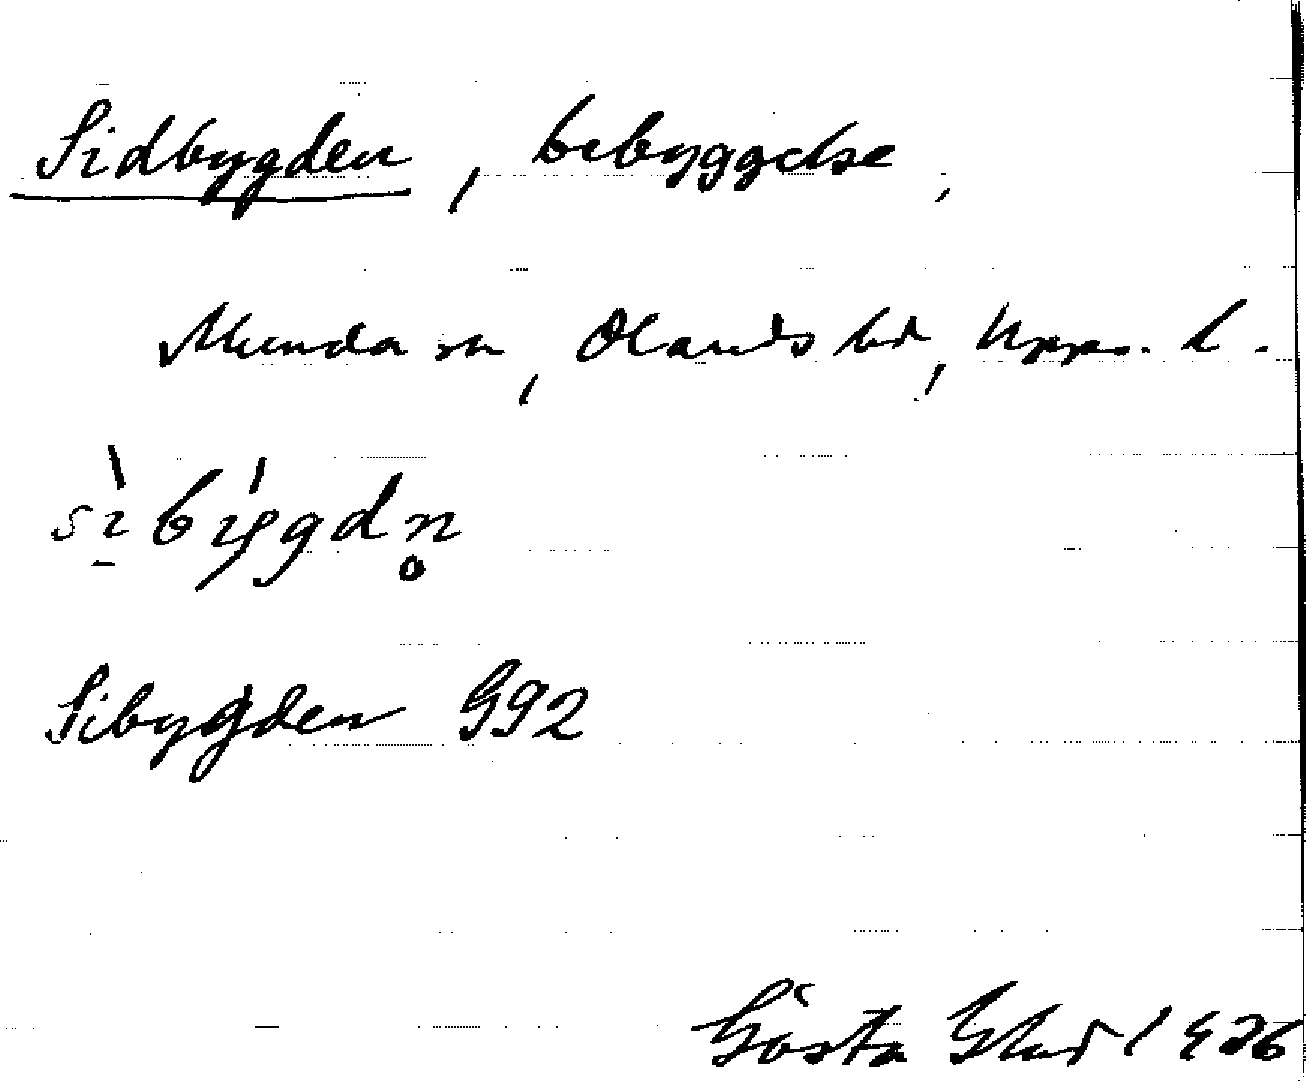 Sidbygden, bebyggelse,
Munda sn, Olands hd, Upps. l.
sìbýgdn̥
Sibygden G92
Gösta 1926